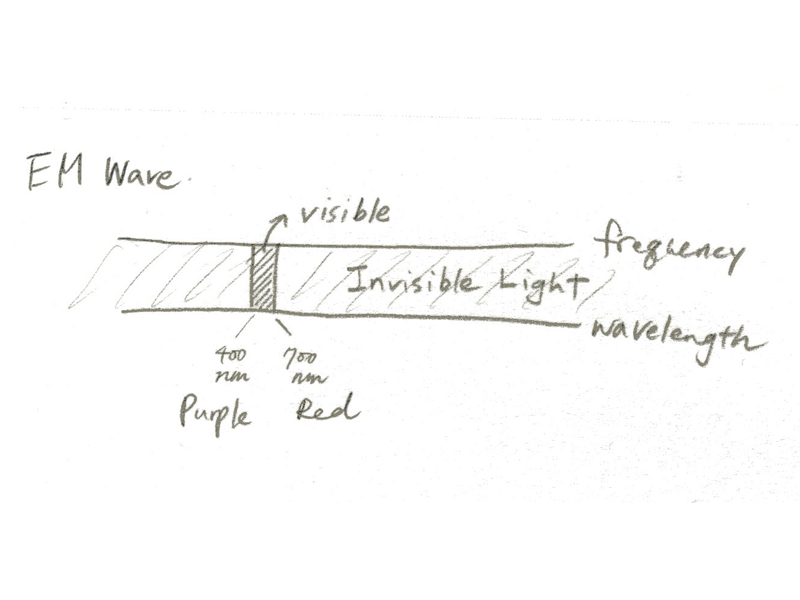 EM Wave.
visible
frequency
Invisible Light
wavelength
400 nm
700 nm
Purple
Red